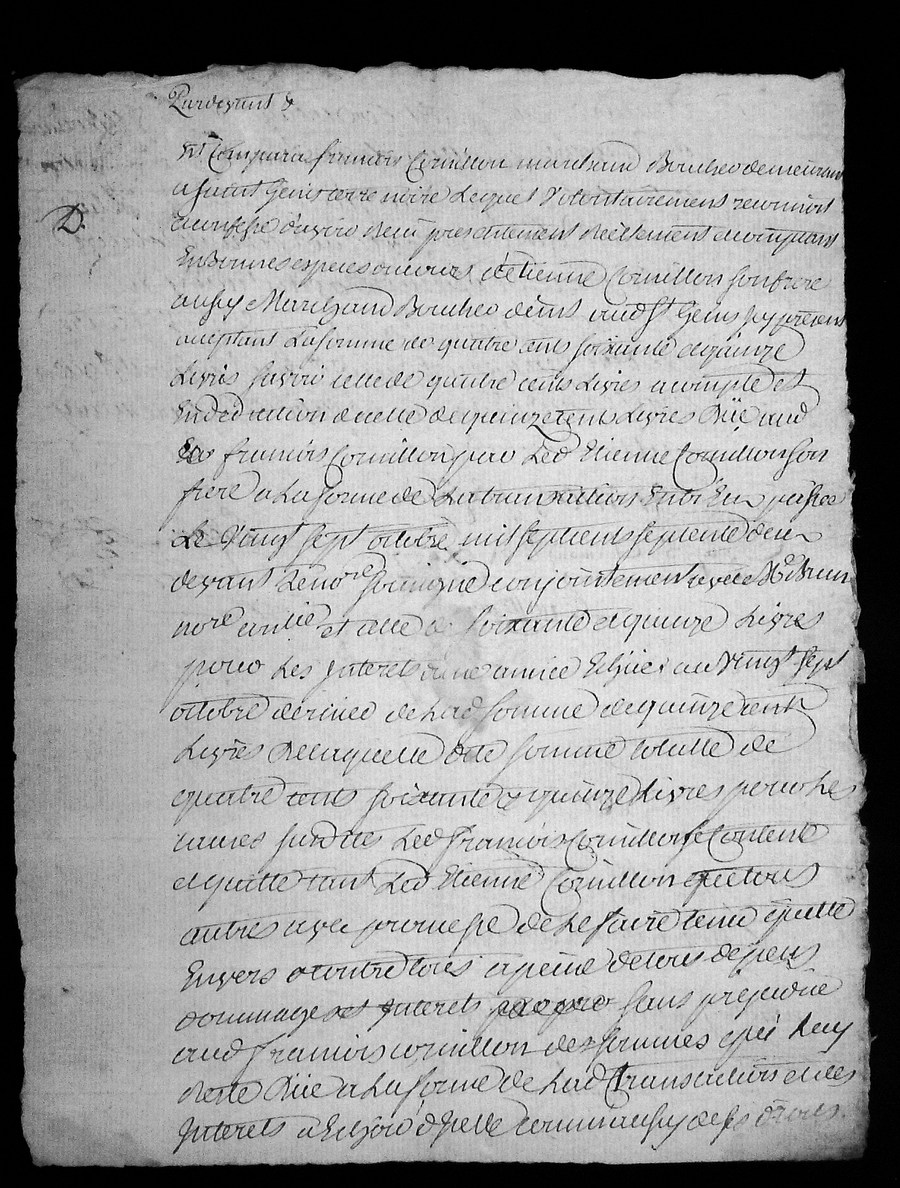 Pardevant &
Est Comparu francois Cornillon marchand Boucher demeurant
a saint Genis terre noire Lequel Volontairement reconnoit
confesse d'avoir Receu presentement Réellement acomptant
En Bonnes especes au cours d'étienne Cornillon son frere
aussy Marchand Boucher audt St Genis jcy présent
acceptant La somme de quatre cents soixante et quinze
Livres savoir celle de quatre cents Livres acompte et
En déduction de celle de quinze cents Livres Düe aud
francois Cornillon par Led Etienne Cornillon son
frere a La forme de La transaction Entr'Eux passée
Le Vingt sept octobre mil sept cents septente deux
devant Le nore soussigné conjointement avec Me Brun
nore et celle de soixante et quinze Livres
pour Les Interets d'une année Echüe au Vingt sept
octobre dernier de Lad somme de quinze cents
Livres De laquelle dite somme totalle de
quatre cents soixante & quinze Livres pour Les
causes susdites Led francois Cornillon se Contente
et quitte tant Led Etienne Cornillon que tous
autres avec promesse de Le faire tenir quitte
Envers & contre tous a peine de tous depens
dommages et Interets sans prejudice
aud francois cornillon des sommes a Luy
Reste Düe a La forme de Lad transaction et des
Interets a Echoir d'jcelle comm'aussy de ses droits
D.